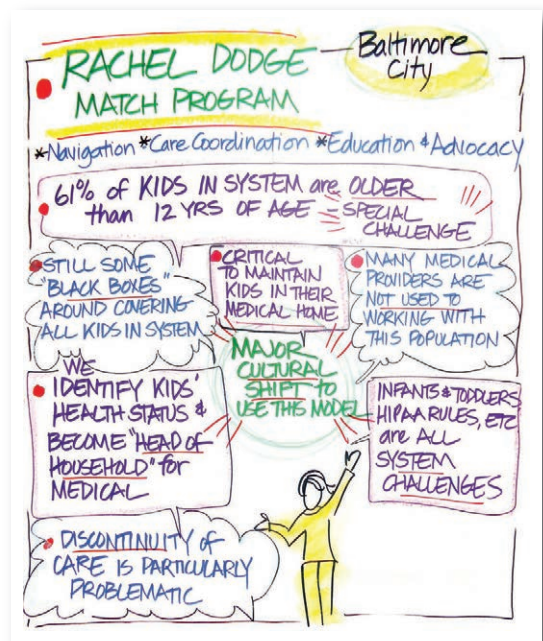 RACHEL DODGE
MATCH PROGRAM
Baltimore
City
*Navigation *Care Coordination *Education & Advocacy
61% of KIDS IN SYSTEM are OLDER
than 12 YRS OF AGE = SPECIAL
CHALLENGE
STILL SOME
"BLACK BOXES"
AROUND COVERING
ALL KIDS IN SYSTEM
CRITICAL
TO MAINTAIN
KIDS IN THEIR
MEDICAL HOME
MANY MEDICAL
PROVIDERS ARE
NOT USED TO
WORKING WITH
THIS POPULATION
MAJOR
CULTURAL
SHIFT TO
USE THIS MODEL
WE
IDENTIFY KIDS'
HEALTH STATUS &
BECOME "HEAD OF
HOUSEHOLD" for
MEDICAL
INFANTS & TODDLERS
HIPAA RULES, ETC
are ALL
SYSTEM
CHALLENGES
DISCONTINUITY OF
CARE IS PARTICULARLY
PROBLEMATIC